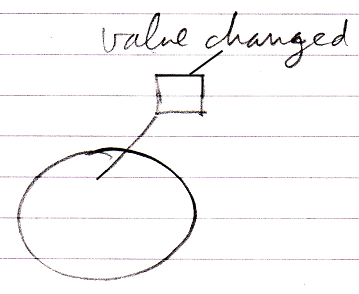 value changed